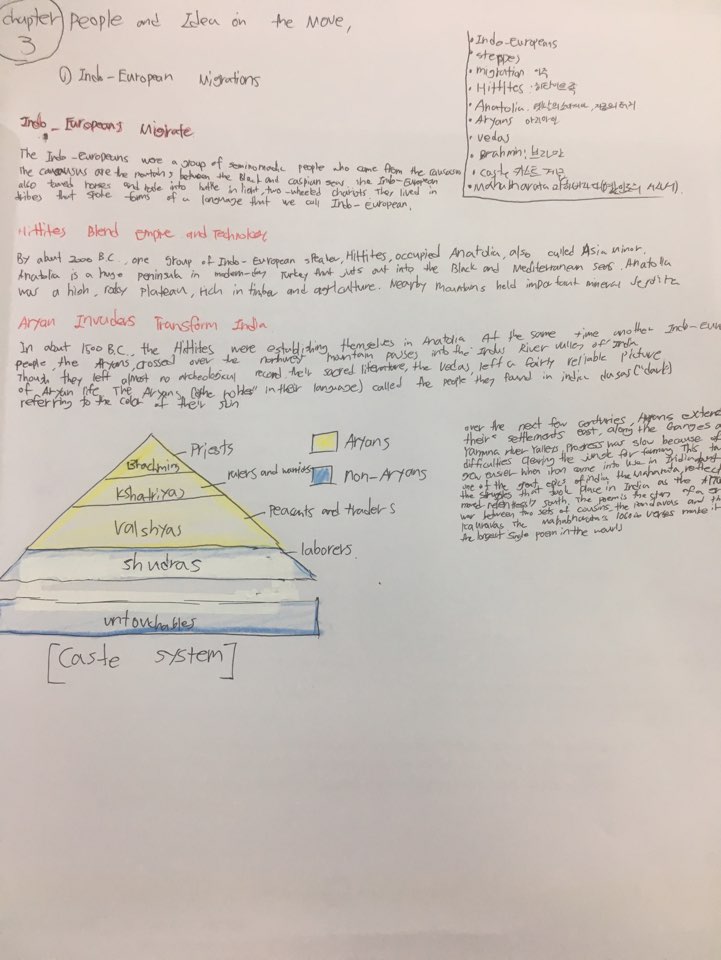 chapter 3
People and Idea on the Move,
① Indo-European Migrations
• Indo-Europeans
• steppes
• migration 이주
• Hittites
• Anatolia
• Aryans 아리아인
• vedas
• Brahmin: 브라만
• caste 카스트 계급
• Mahabharata
Indo-Europeans Migrate
The Indo-Europeans were a group of seminomadic people who came from the
The are the between the Black and caspian seas the Indo-European
also tamed horses and rode into battle in light, two-wheeled chariots They lived in
tribes that spoke forms of a language that we call Indo-European.
Hittites Blend empire and Technology
By about 2000 B.C., one group of Indo-European speaker, Hittites, occupied Anatolia, also called Asia minor.
Anatolia is a huge peninsula in modern-day Turkey that juts out into the Black and Mediterranean seas. Anatolia
was a high, rocky plateau, rich in timber and agriculture. Nearby mountains held important mineral
Aryan Invaders Transform India
In about 1500 B.C., the Hittites were establishing themselves in Anatolia. At the same time another Indo-eur
people, the Aryans, crossed over the northwest mountain passes into the Indus River valley of India
Though they left almost no archeological record their sacred literature, the vedas, left a fairly reliable picture
of Aryan life. The Aryans ( "nobles" in their language) called the people they found in india dasas ("dark")
referring to the color of their skin
over the next few centuries, Aryans exten
their settlements east, along the Ganges a
Yamuna river valleys. Progress was slow because of
difficulties clearing the jungle for farming This ta
easier when iron came into use in
one of the great epics of india, the reflect
the struggles that took place in India as the
moved relentlessly south, The poem is the story of a
war between two sets of cousins, the pandavas and th
kauravas the mahabharata's verses make it
the largest single poem in the world
Brachmins
Priests
Kshatriyas
rulers and
valshyas
peacents and traders
shudras
laborers
untouchables
Aryans
non-Aryans
[Caste system]